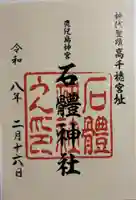 神代聖蹟高千穂宮址
鹿児島神宮
石體神社
石體
令和八年二月十六日